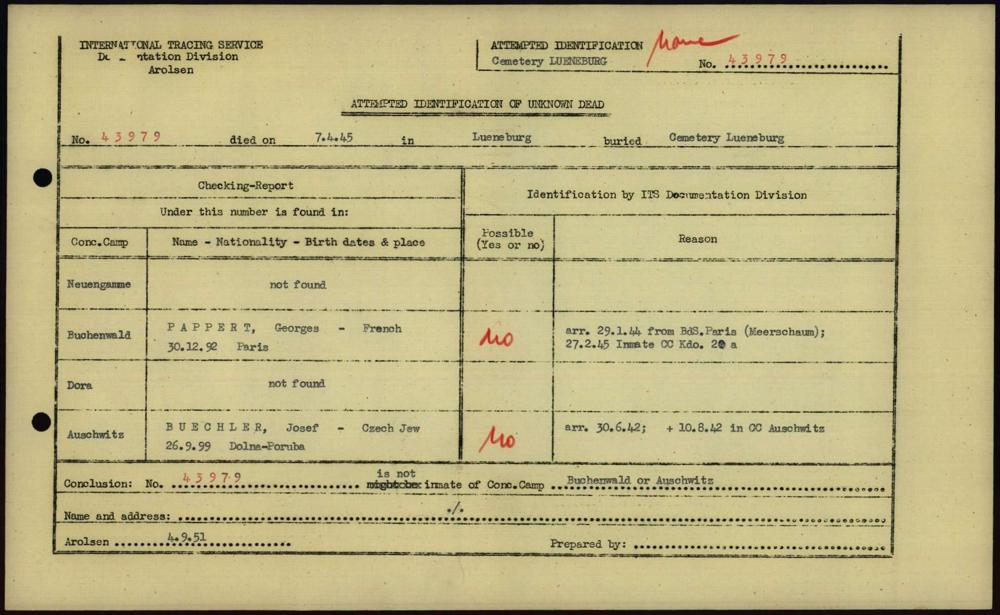 INTERNATIONAL TRACING SERVICE
Division
Arolsen
ATTEMPTED IDENTIFICATION
Cemetery LUENEBURG
No. 43979
ATTEMPTED IDENTIFICATION OF UNKNOWN DEAD
No. 43979 died on 7.4.45 in Lueneburg buried Cemetery Lueneburg
Checking-Report
Under this number is found in:
Identification by ITS Documentation Division
Conc.Camp
Name - Nationality - Birth dates & place
Possible
(Yes or no)
Reason
Neuengamme
not found
Buchenwald
PAPPERT, Georges - French
30.12.92 Paris
No
arr. 29.1.44 from BdS.Paris (Meerschaum);
27.2.45 Inmate CC Kdo. a
Dora
not found
Auschwitz
BUECHLER, Josef - Czech Jew
26.9.99 Dolna-Poruba
No
arr. 30.6.42; + 10.8.42 in CC Auschwitz
is not
Conclusion: No. 43979 inmate of Conc.Camp Buchenwald or Auschwitz
Name and address: ./.
Arolsen 4.9.51
Prepared by: